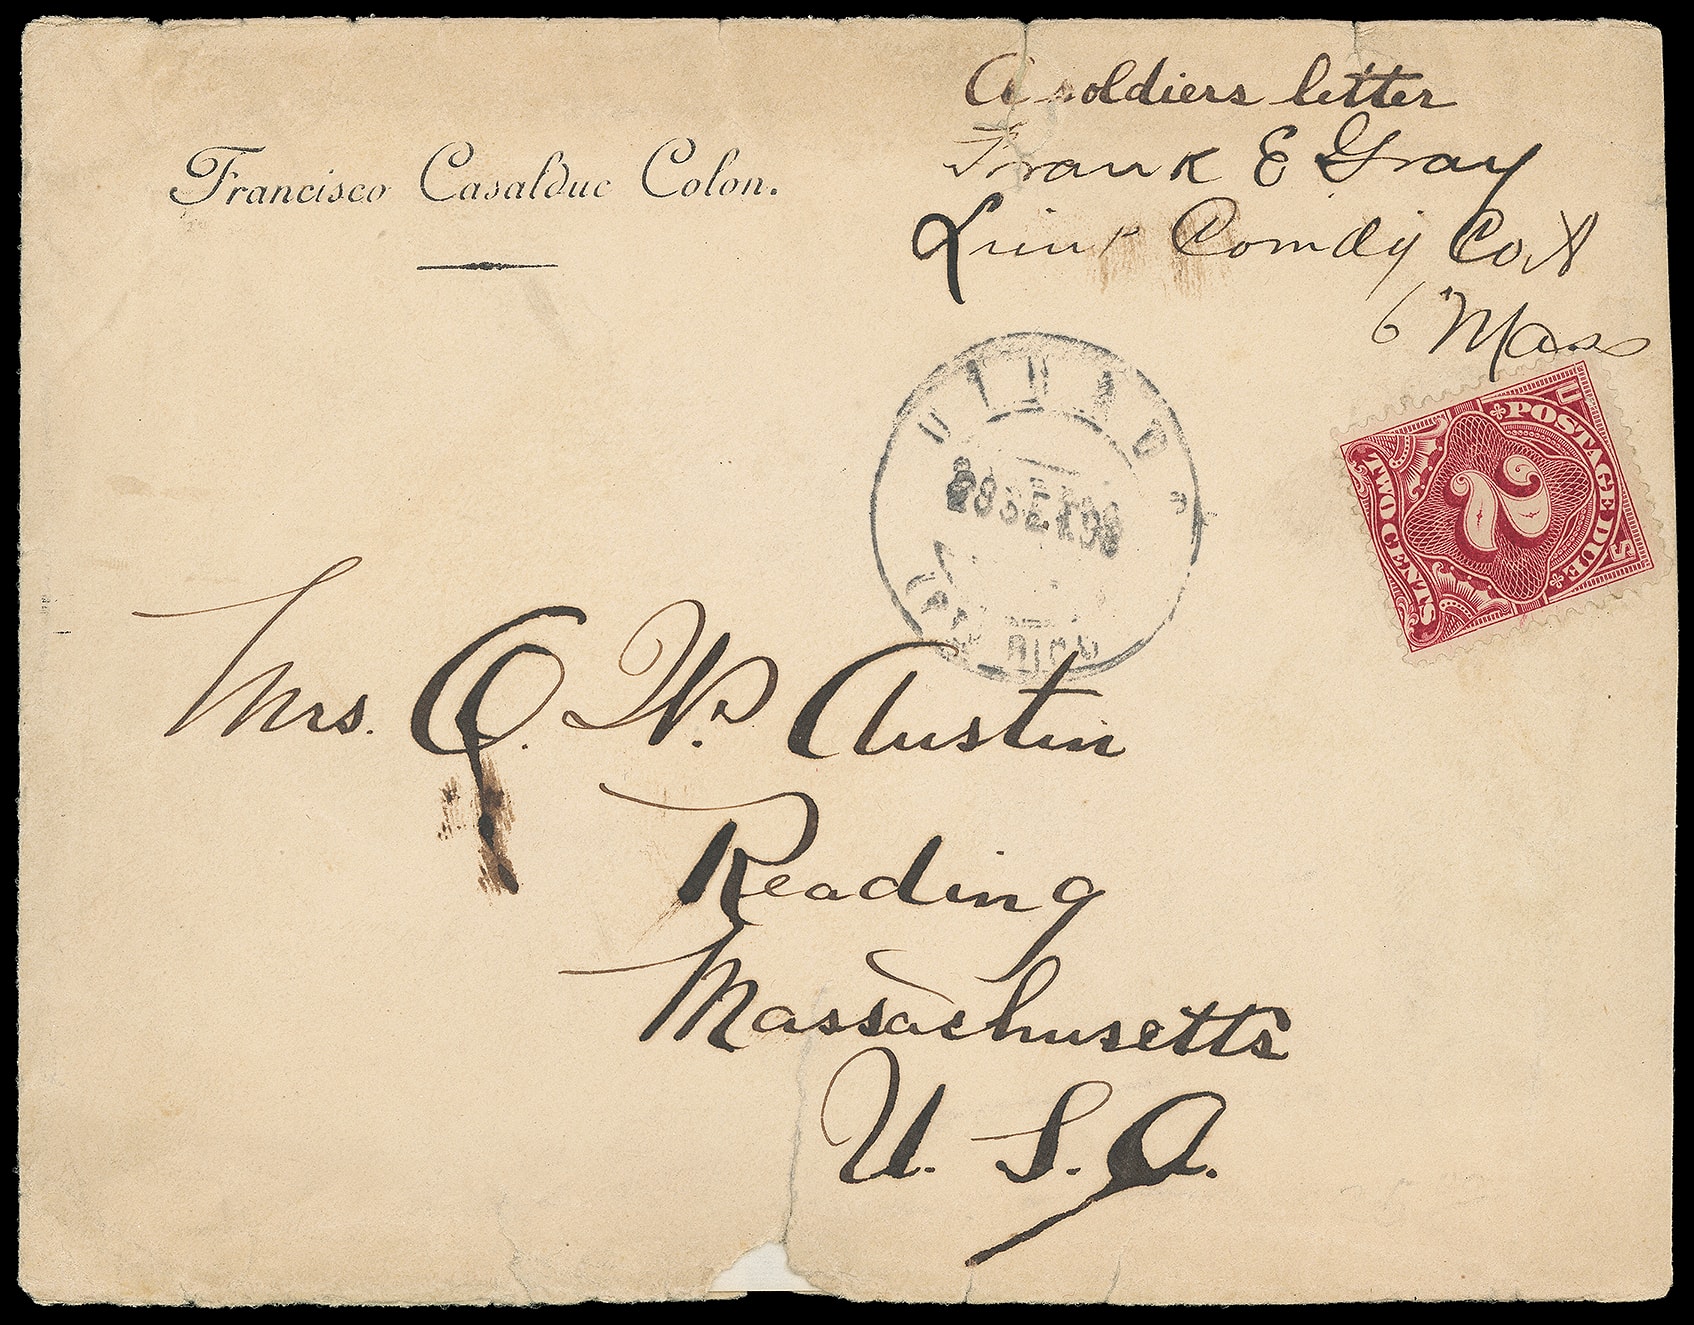 Francisco Casalduc Colon.
A soldiers letter
Frank E Gray
Lieut Comdg Co A
6 Mass
U S
POSTAGE DUE
2
TWO CENTS
28 SEP 98
Mrs. O. W. Austin
Reading
Massachusetts
U. S. A.